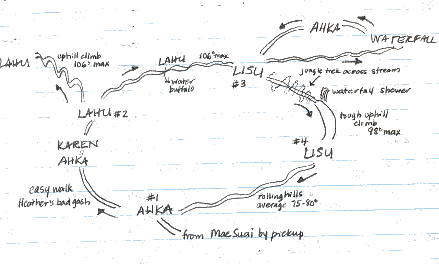 AHKA
WATERFALL
LAHU
uphill climb
106° max
LAHU
106° max
water
buffalo
LISU
#3
jungle trek across stream
waterfall shower
tough uphill
climb
98° max
LAHU #2
KAREN
AHKA
#4
LISU
easy walk
Heather's bad gash
#1
AHKA
rolling hills
average 75-80°
from Mae Suai by pickup